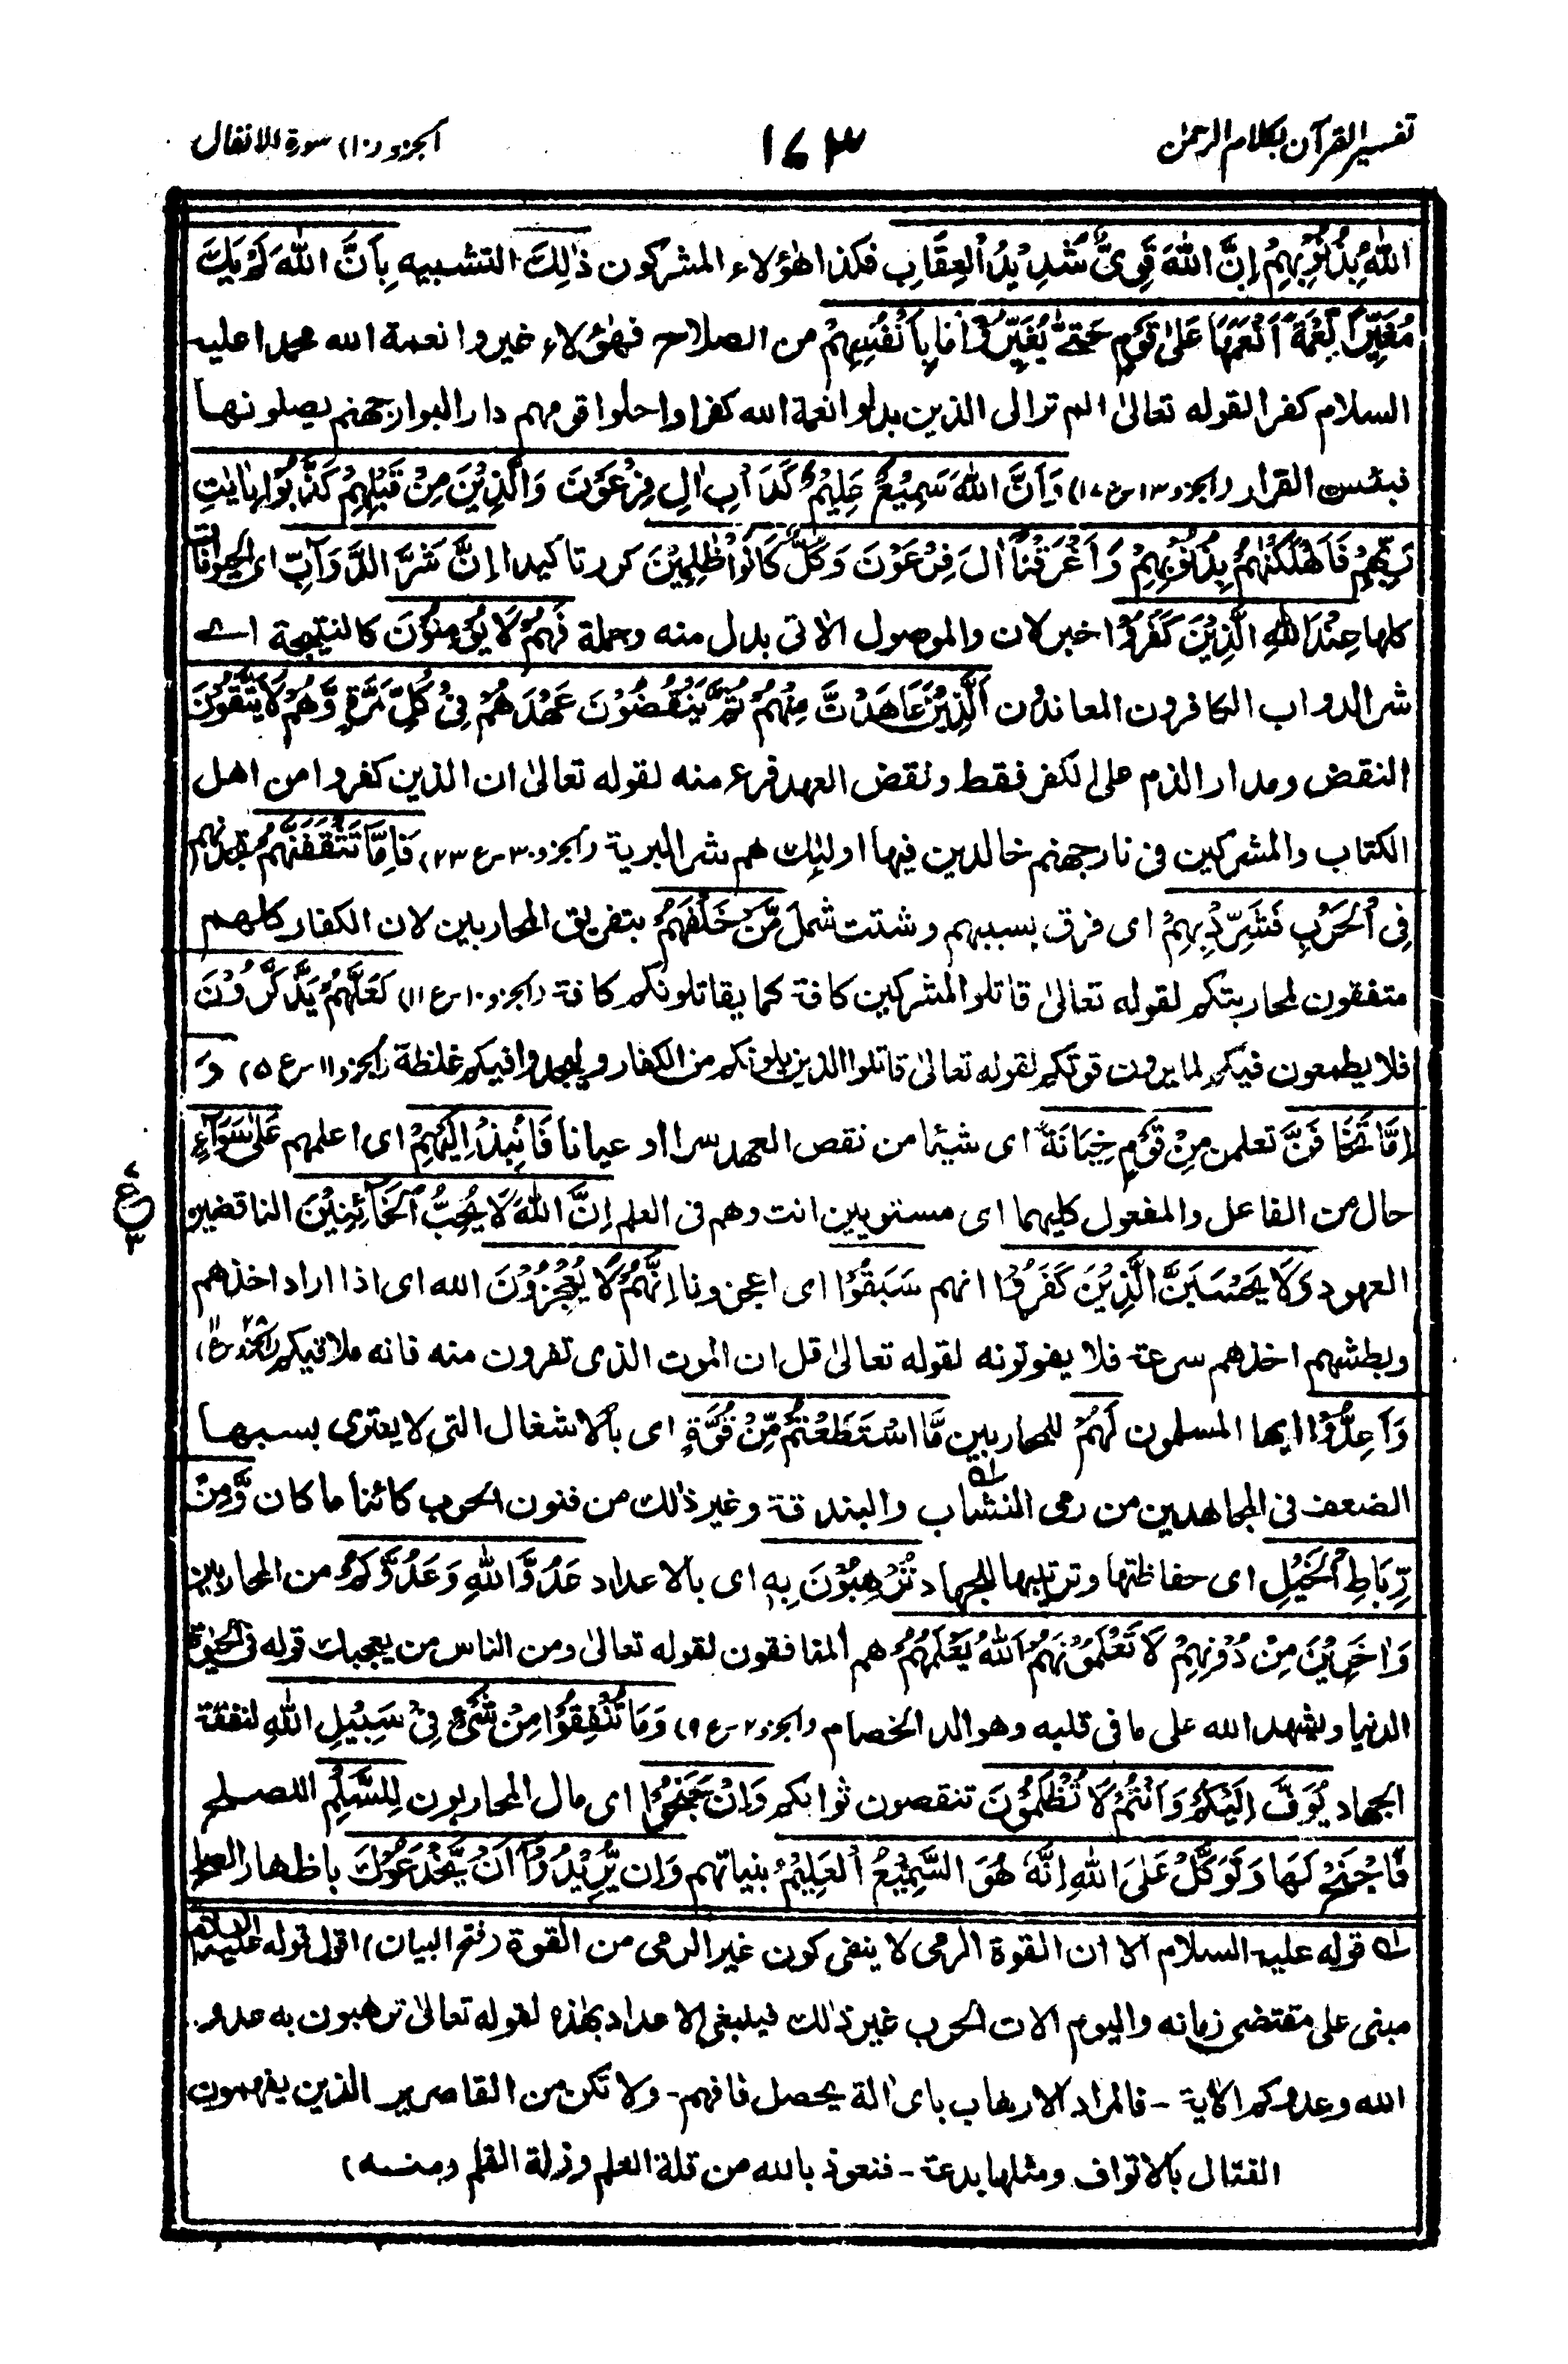 تفسير القرآن بكلام الرحمن
١٧٣
الجزو (١٠) سورة الانفال
اللهُ بِذُنُوْبِهِمْ اِنَّ اللهَ قَوِيٌّ شَدِيْدُ الْعِقَابِ فكذا هٰؤلاء المشركون ذٰلِكَ التشبيه بِاَنَّ اللهَ لَمْ يَكُ
مُغَيِّرًا نِّعْمَةً اَنْعَمَهَا عَلٰى قَوْمٍ حَتّٰى يُغَيِّرُوْا مَا بِاَنْفُسِهِمْ من الصلاح فهٰؤلاء غيروا نعمة الله محمدا عليه
السلام كفرا لقوله تعالىٰ الم تر الى الذين بدلوا نعمة الله كفرا واحلوا قومهم دار البوار جهنم يصلونها
فبئس القرار (الجزو ١٣ ـ ع ١٧) وَاَنَّ اللهَ سَمِيْعٌ عَلِيْمٌ كَدَاْبِ اٰلِ فِرْعَوْنَ وَالَّذِيْنَ مِنْ قَبْلِهِمْ كَذَّبُوْا بِاٰيٰتِ
رَبِّهِمْ فَاَهْلَكْنٰهُمْ بِذُنُوْبِهِمْ وَاَغْرَقْنَا اٰلَ فِرْعَوْنَ وَكُلٌّ كَانُوْا ظٰلِمِيْنَ كرر تاكيدا اِنَّ شَرَّ الدَّوَآبِّ اى الحيوانات
كلها عِنْدَ اللهِ الَّذِيْنَ كَفَرُوْا خبر لان والموصول الاٰتى بدل منه وجملة فَهُمْ لَا يُؤْمِنُوْنَ كالنتيجة اے
شر الدواب الكافرون المعاندون اَلَّذِيْنَ عَاهَدْتَّ مِنْهُمْ ثُمَّ يَنْقُضُوْنَ عَهْدَهُمْ فِيْ كُلِّ مَرَّةٍ وَّهُمْ لَا يَتَّقُوْنَ
النقض ومدار الذم على الكفر فقط ونقض العهد فرع منه لقوله تعالىٰ ان الذين كفروا من اهل
الكتاب والمشركين فى نار جهنم خالدين فيها اولئك هم شر البرية (الجزو ٣٠ ـ ع ٢٣) فَاِمَّا تَثْقَفَنَّهُمْ تجدنهم
فِى الْحَرْبِ فَشَرِّدْ بِهِمْ اى فرق بسببهم وشتت شمل مَّنْ خَلْفَهُمْ بتفريق المحاربين لان الكفار كلهم
متفقون لمحاربتكم لقوله تعالىٰ قاتلوا المشركين كافة كما يقاتلونكم كافة (الجزو ١٠ ـ ع ١١) لَعَلَّهُمْ يَذَّكَّرُوْنَ
فلا يطمعون فيكم لما يرون قوتكم لقوله تعالىٰ قاتلوا الذين يلونكم من الكفار وليجدوا فيكم غلظة (الجزو ١١ ـ ع ٥) وَ
اِمَّا تَخَافَنَّ تعلمن مِنْ قَوْمٍ خِيَانَةً اى شيئا من نقص العهد سرا او عيانا فَانْۢبِذْ اِلَيْهِمْ اى اعلمهم عَلٰى سَوَآءٍ
حال من الفاعل والمفعول كليهما اى مستويين انت وهم فى العلم اِنَّ اللهَ لَا يُحِبُّ الْخَآئِنِيْنَ الناقضين
العهود وَلَا يَحْسَبَنَّ الَّذِيْنَ كَفَرُوْا انهم سَبَقُوْا اى اعجزونا اِنَّهُمْ لَا يُعْجِزُوْنَ الله اى اذا اراد اخذهم
وبطشهم اخذهم سرعة فلا يفوتونه لقوله تعالىٰ قل ان الموت الذى تفرون منه فانه ملاقيكم (الجزو ٢٨ ـ ع ١١)
وَاَعِدُّوْا ايها المسلمون لَهُمْ للمحاربين مَّا اسْتَطَعْتُمْ مِّنْ قُوَّةٍ اى بالاشغال التى لا يعترى بسببها
الضعف فى المجاهدين من رمى النشاب ؎١ والبندقة وغير ذالك من فنون الحرب كائنا ما كان وَّمِنْ
رِّبَاطِ الْخَيْلِ اى حفاظتها وترتيبها للجهاد تُرْهِبُوْنَ بِهٖ اى بالاعداد عَدُوَّ اللهِ وَعَدُوَّكُمْ من المحاربين
وَاٰخَرِيْنَ مِنْ دُوْنِهِمْ لَا تَعْلَمُوْنَهُمْ اَللهُ يَعْلَمُهُمْ هم المنافقون لقوله تعالىٰ ومن الناس من يعجبك قوله فى الحيٰوة
الدنيا ويشهد الله على ما فى قلبه وهو الد الخصام (الجزو ٢ ـ ع ٩) وَمَا تُنْفِقُوْا مِنْ شَيْءٍ فِيْ سَبِيْلِ اللهِ لنفقة
الجهاد يُوَفَّ اِلَيْكُمْ وَاَنْتُمْ لَا تُظْلَمُوْنَ تنقصون ثوابكم وَاِنْ جَنَحُوْا اى مال المحاربون لِلسَّلْمِ للصلح
فَاجْنَحْ لَهَا وَتَوَكَّلْ عَلَى اللهِ اِنَّهٗ هُوَ السَّمِيْعُ الْعَلِيْمُ بنياتهم وَاِنْ يُّرِيْدُوْٓا اَنْ يَّخْدَعُوْكَ باظهار الصلح
ع ٣
؎١ قوله عليه السلام الا ان القوة الرمى لا ينفى كون غير الرمى من القوة (فتح البيان) اقول قوله عليه السلام
مبنى على مقتضى زمانه واليوم الات الحرب غير ذالك فينبغى الاعداد بهٰذه لقوله تعالىٰ ترهبون به عدو
الله وعدوكم الاٰية - فالمراد الارهاب باى اٰلة يحصل فافهم - ولا تكن من القاصرين الذين يفهمون
القتال بالاتواف ومثلها بدعة - فنعوذ بالله من قلة العلم وزلة القلم (منه)